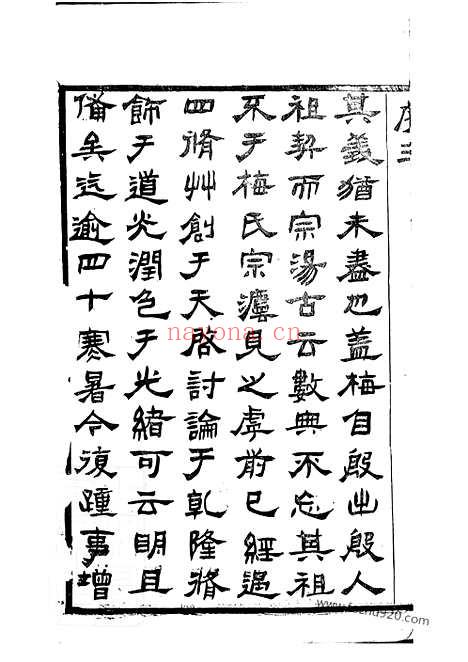 序
其義猶未盡也蓋梅自殷出殷人
祖契而宗湯古云數典不忘其祖
于梅氏宗灋見之虖前已經過
四脩艸創于天啓討論于乾隆脩
飾于道光潤色于光緒可云明且
備矣迄逾四十寒暑今復踵事增
nayona.cn
www.fozhu920.com